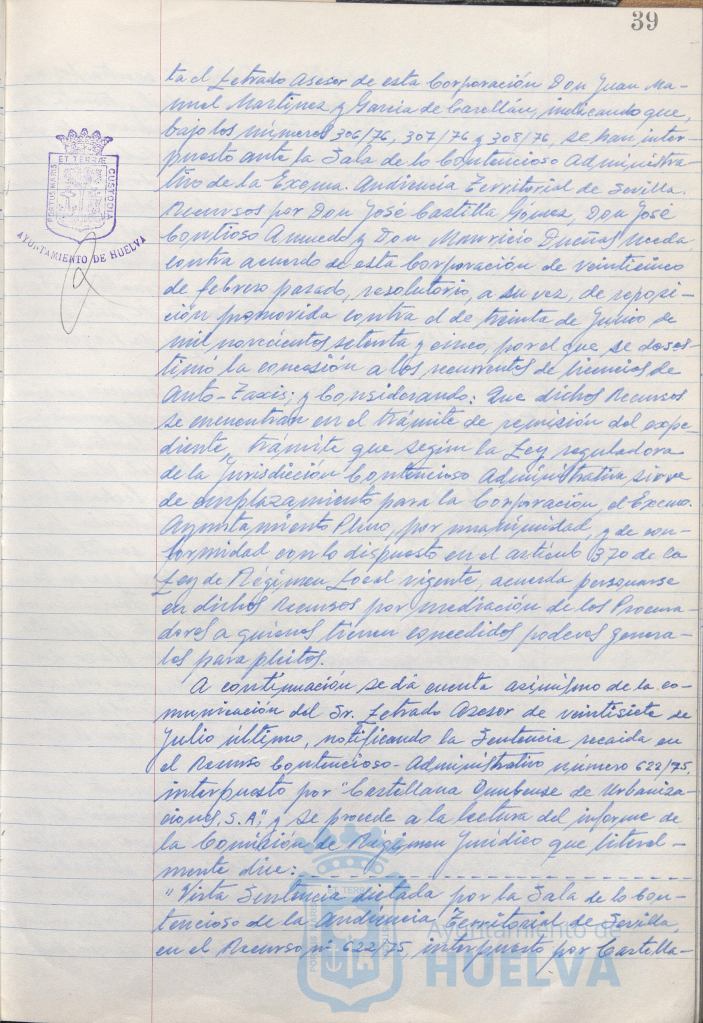 39
ta el Letrado Asesor de esta Corporación Don Juan Ma-
nuel Martinez y Garcia de Carellán, indicando que,
bajo los números 306/76, 307/76 y 308/76, se han inter-
puesto ante la Sala de lo Contencioso Administra-
tivo de la Excma. Audiencia Territorial de Sevilla.
Recursos por Don José Castilla Gómez, Don José
Contioso Amuedo y Don Mauricio Dueñas Uceda,
contra acuerdo de esta Corporación de veinticinco
de febrero pasado, resolutorio, a su vez, de reposi-
ción promovida contra el de treinta de Junio de
mil novecientos setenta y cinco, por el que se deses-
timó la concesión a los recurrentes de licencias de
Auto-Taxis; y Considerando: Que dichos Recursos
se encuentran en el trámite de remisión del expe-
diente, trámite que según la Ley reguladora
de la Jurisdicción Contencioso Administrativa sirve
de emplazamiento para la Corporación, el Excmo.
Ayuntamiento Pleno, por unanimidad, y de con-
formidad con lo dispuesto en el artículo 370 de la
Ley de Régimen Local vigente, acuerda personarse
en dichos Recursos por mediación de los Procura-
dores a quienes tienen concedidos poderes genera-
les para pleitos.
A continuación se dá cuenta asimismo de la co-
municación del Sr. Letrado Asesor de veintisiete de
Julio último, notificando la Sentencia recaida en
el Recurso Contencioso-Administrativo número 622/75,
interpuesto por "Castellana Onubense de Urbaniza-
ciones, S.A.", y se procede a la lectura del informe de
la Comisión de Régimen Jurídico que literal-
mente dice:
"Vista Sentencia dictada por la Sala de lo Con-
tencioso de la Audiencia Territorial de Sevilla,
en el Recurso nº 622/75, interpuesto por Castella-
PORTUS MARIS
ET TERRÆ
CUSTODIA
AYUNTAMIENTO DE HUELVA
Ayuntamiento de
HUELVA